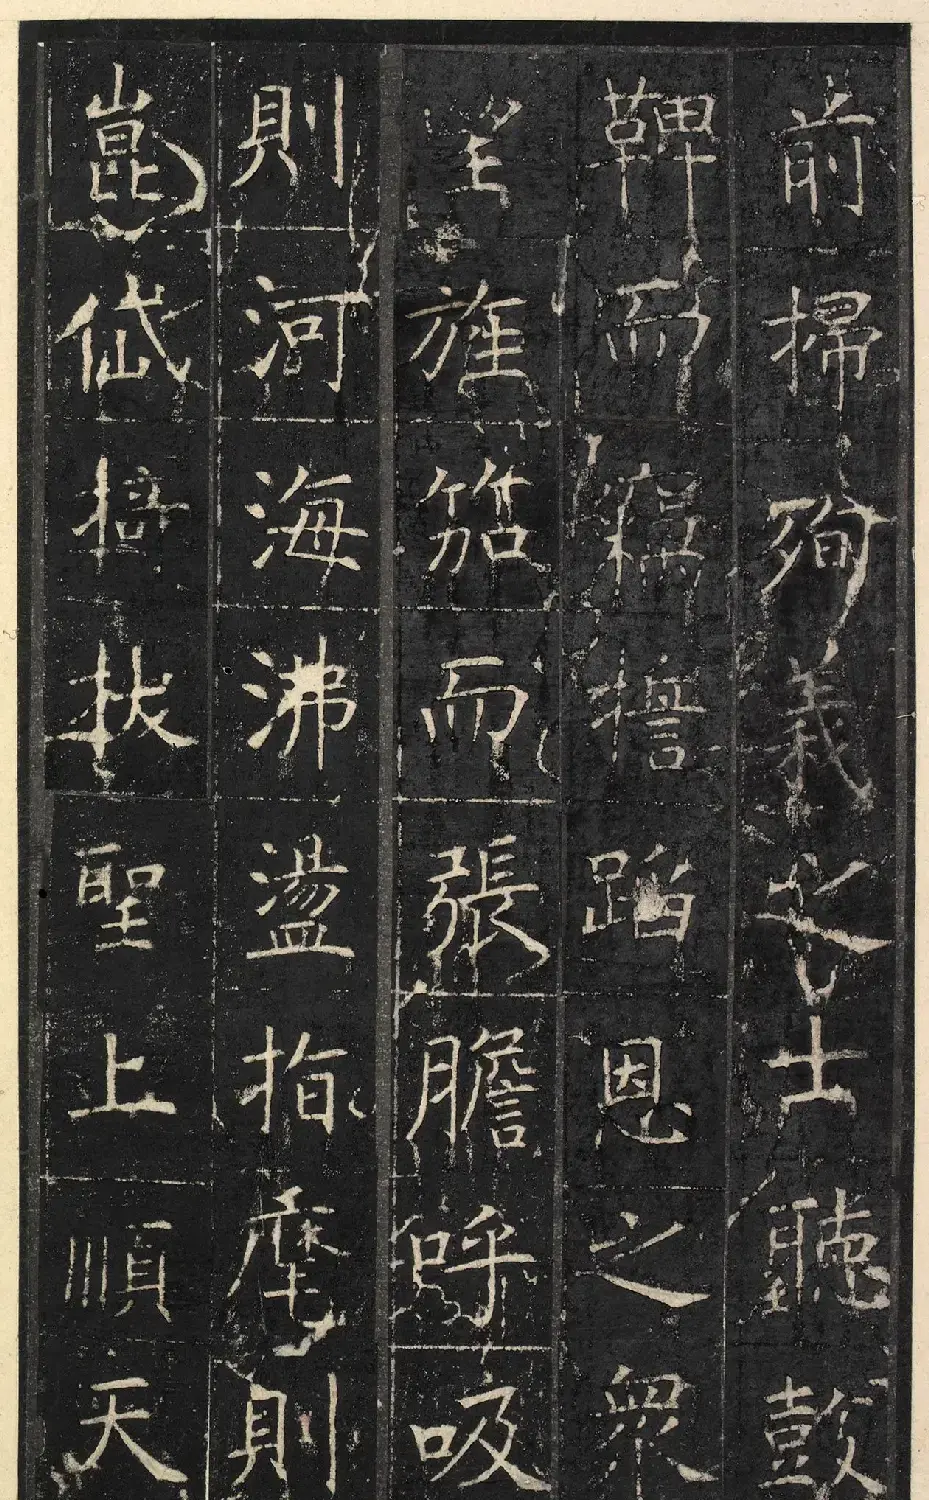 前掃殉義之士聽鼓
鞞而蹈恩之眾
望旌笳而張膽呼吸
則河海沸盪指麾則
崑岱聖上順天